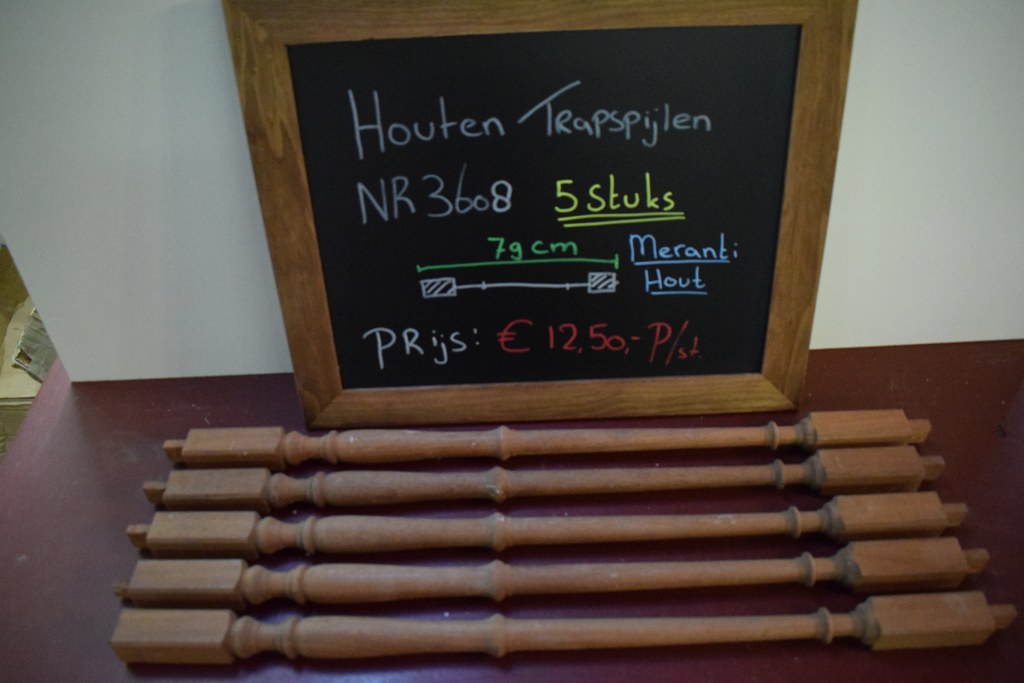 Houten Trapspijlen
NR 3608 5 Stuks
79 cm Meranti
Hout
PRijs: € 12,50,- P/st.